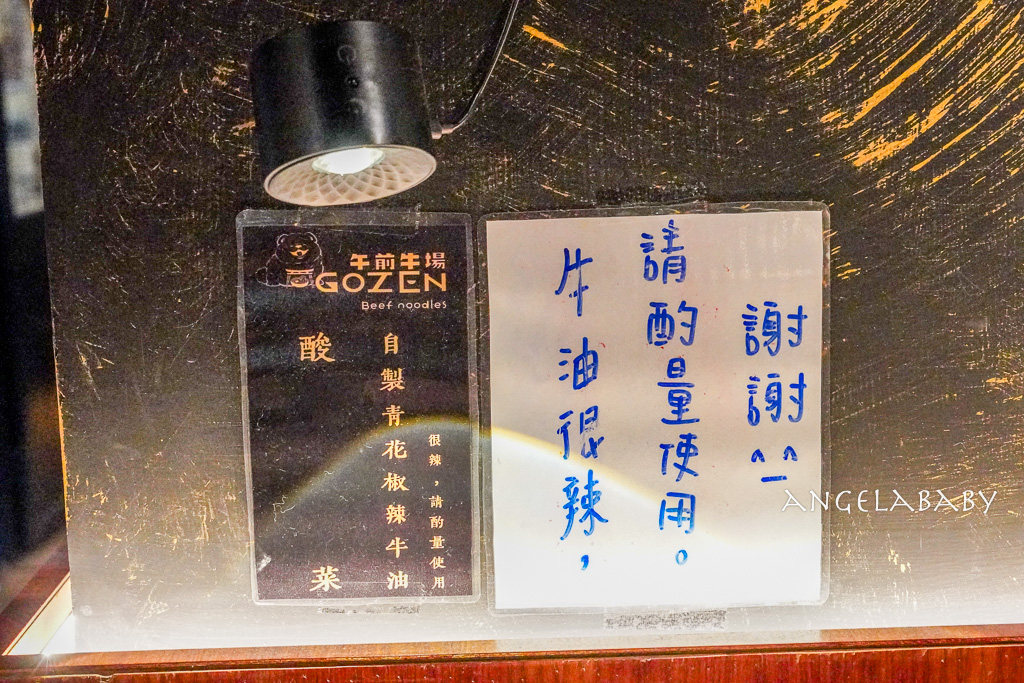 午前牛場
GOZEN
Beef noodles
很辣，請酌量使用
自製青花椒辣牛油
酸菜
牛油很辣，
請酌量使用。
謝謝^_^
ANGELABABY